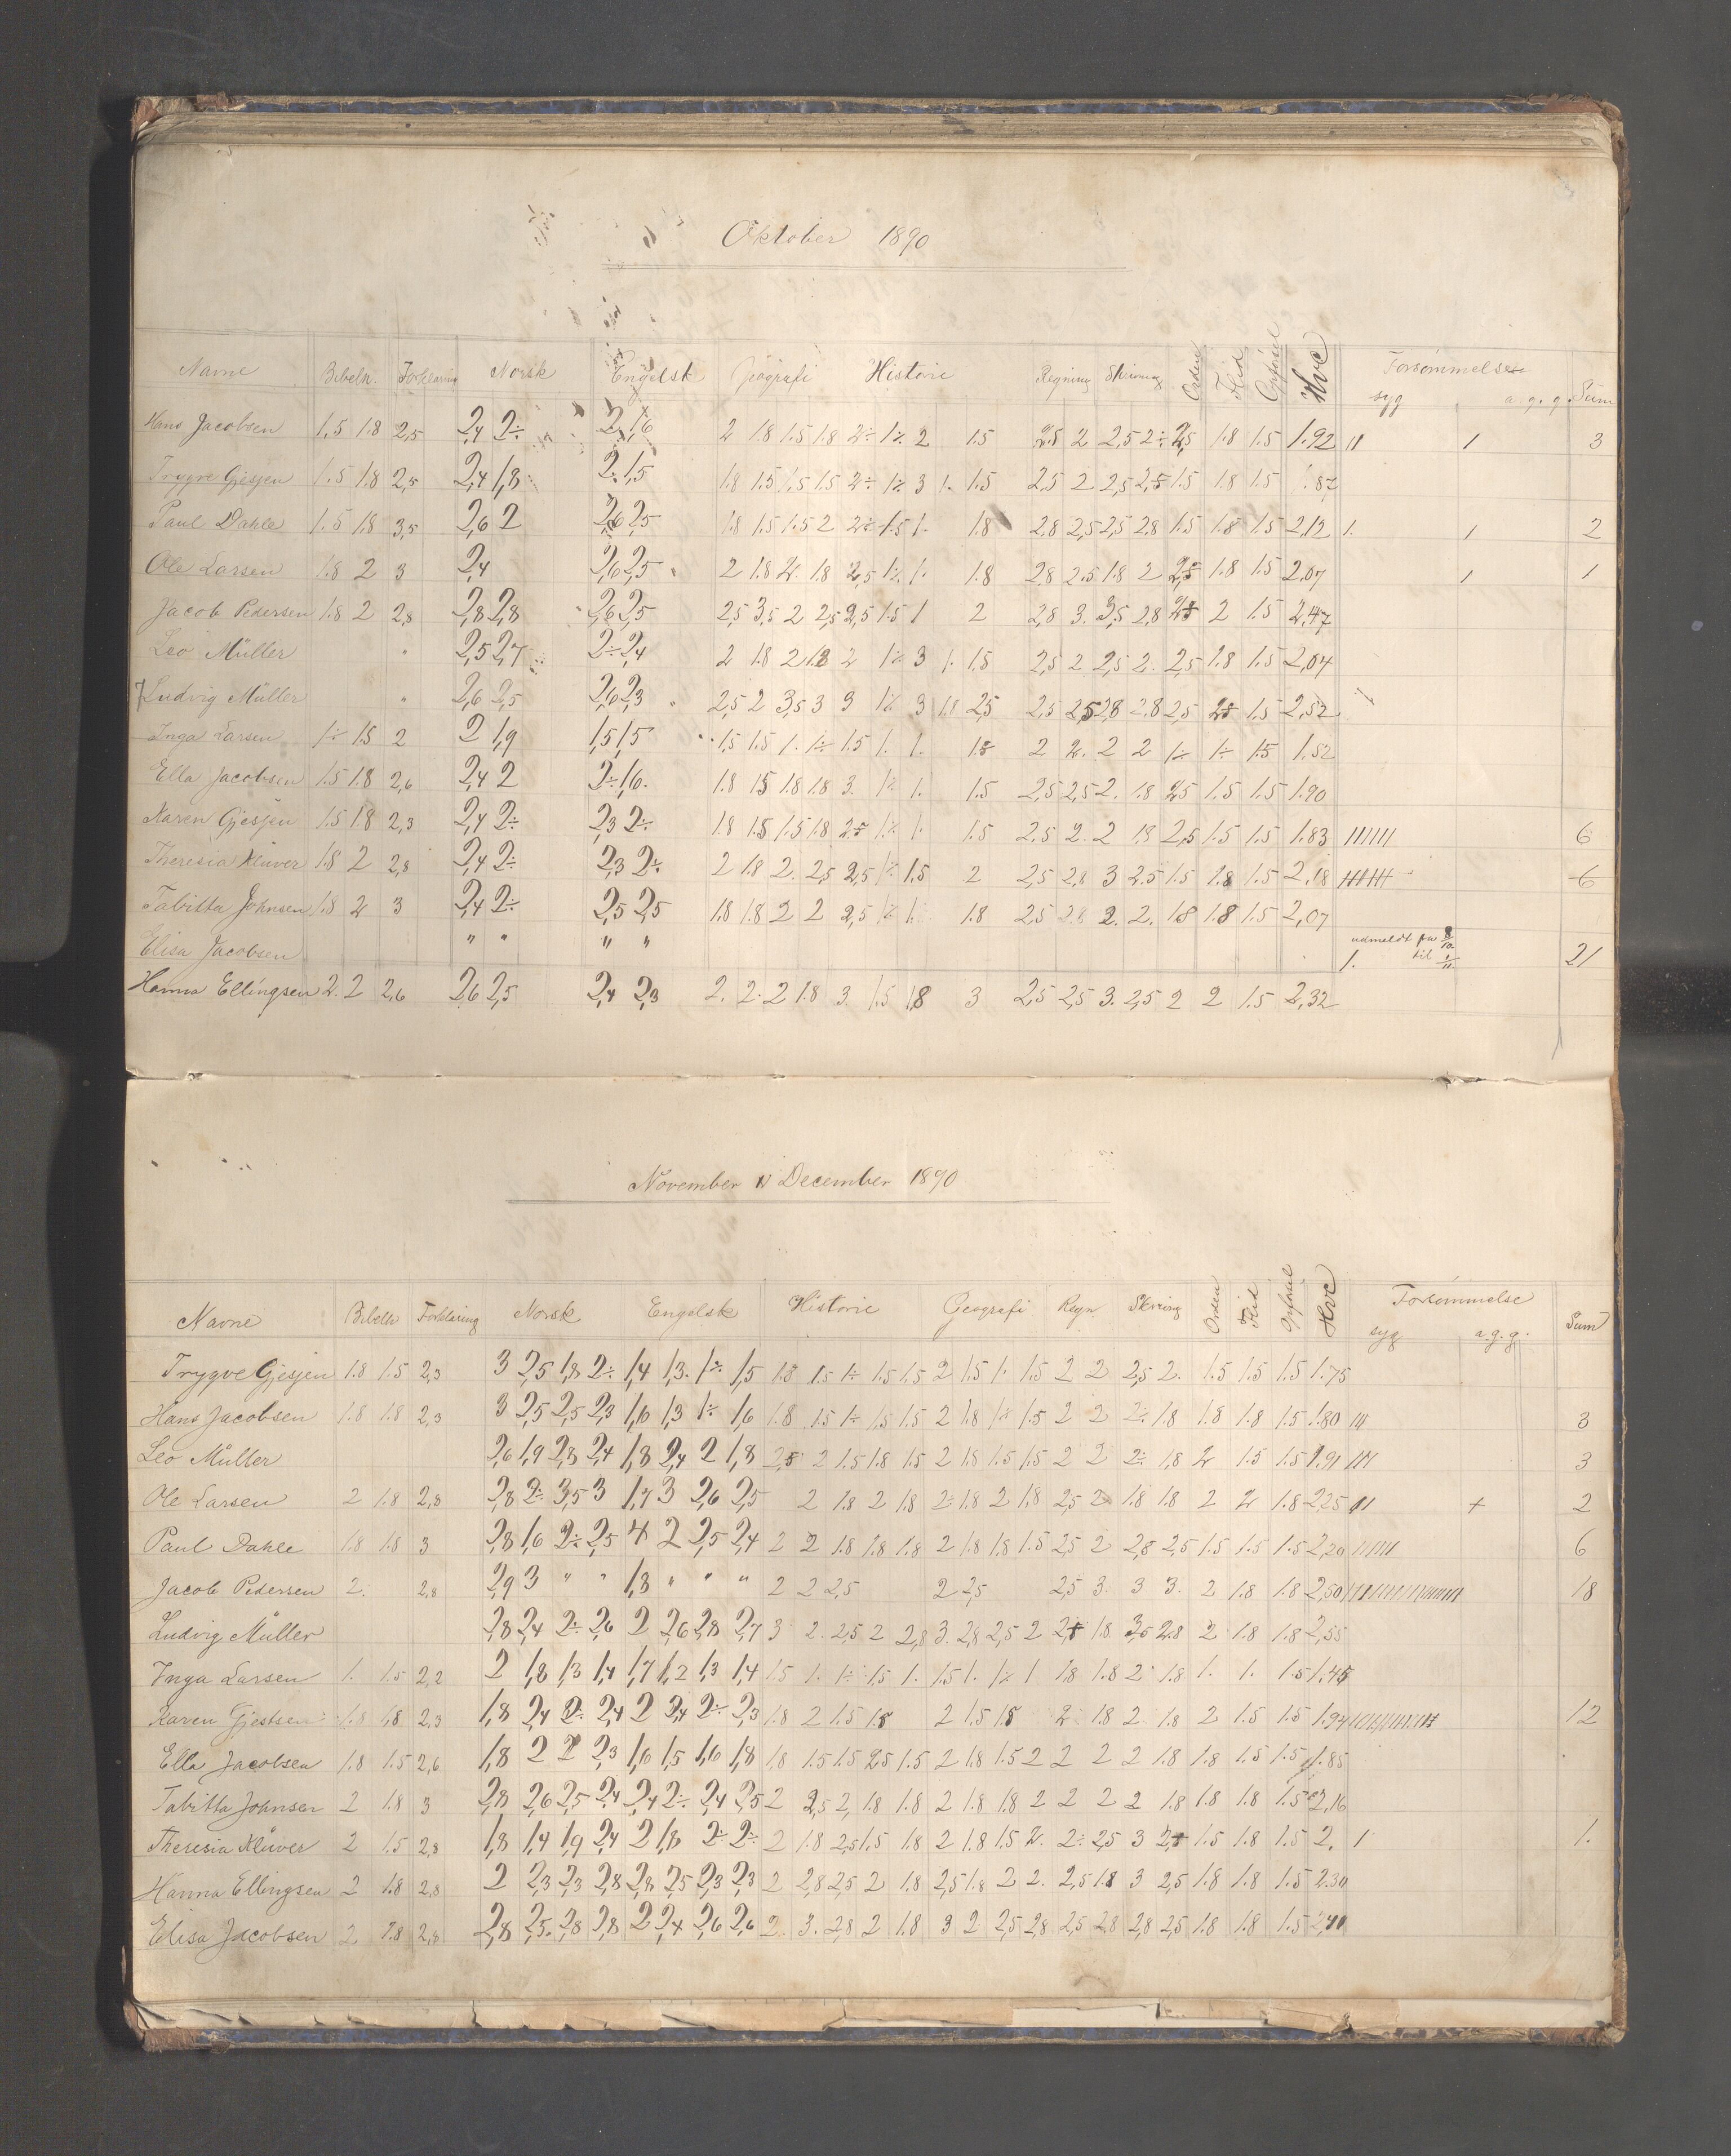 Oktober 1890
Navne Bibelh. Forklaring Norsk Engelsk Geografi Historie Regning Skrivning Orden Flid Opførsel Hvc Forsømmelser
syg a. g. g. Sum
Hans Jacobsen 1.5 1.8 2,5 2,4 2÷ 2, 1,6 2 1.8 1.5 1.8 2÷ 1÷ 2 1.5 2.8 2 2,5 2÷ 2,5 1.8 1.5 1.92 11 1 3
Trygve Gjesjen 1.5 1.8 2,5 2,4 1,8 2÷ 1,5 1.8 1.5 1.5 1.5 2÷ 1÷ 3 1. 1.5 2,5 2 2,5 2,5 1.5 1.8 1.5 1.87
Paul Dahle 1.5 1.8 3,5 2,6 2 2,6 2,5 1.8 1.5 1.5 2 2÷ 1.5 1. 1.8 2,8 2,5 2,5 2,8 1.5 1.8 1.5 2,12 1. 1 2
Ole Larsen 1.8 2 3 2,4 2,6 2,5 2 1.8 2. 1.8 2,5 1÷ 1. 1.8 2,8 2.5 1.8 2 2,5 1.8 1.5 2,07 1 1
Jacob Pedersen 1.8 2 2,8 2,8 2,8 2,6 2,5 2,5 3,5 2 2,5 2,5 1.5 1 2 2,8 3. 3,5 2,8 2,5 2 1.5 2,47
Leo Müller " 2,5 2,7 2÷ 2,4 2 1.8 2 1.8 2 1÷ 3 1. 1.5 2,5 2 2,5 2. 2,5 1.8 1.5 2,04
Ludvig Müller " 2,6 2,5 2,6 2,3 2,5 2 3,5 3 3 1÷ 3 1.8 2,5 2,5 2,5 2,8 2.8 2,5 2,5 1.5 2,52
Inga Larsen 1÷ 1.5 2 2 1,9 1,5 1,5 1,5 1.5 1. 1÷ 1.5 1. 1. 1.8 2 2. 2 2 1÷ 1÷ 1.5 1,52
Ella Jacobsen 1.5 1.8 2,6 2,4 2 2÷ 1,6. 1.8 1.5 1.8 1.8 3. 1÷ 1. 1.5 2,5 2,5 2. 1.8 2,5 1.5 1.5 1.90
Karen Gjesjen 1.5 1.8 2,3 2,4 2÷ 2,3 2÷ 1.8 1.5 1.5 1.8 2,5 1÷ 1. 1.5 2.5 2. 2 1.8 2,5 1.5 1.5 1.83 111111 6
Theresia Klüver 1.8 2 2,8 2,4 2÷ 2,3 2÷ 2 1.8 2. 2,5 2,5 1÷ 1.5 2 2,5 2,8 3 2.5 1.5 1.8 1.5 2,18 111111 6
Tabitta Johnsen 1.8 2 3 2,4 2÷ 2,5 2,5 1.8 1.8 2 2 2,5 1÷ 1. 1.8 2,5 2.8 2. 2. 1.8 1.8 1.5 2,07
Elisa Jacobsen " " " " udmeldt fra 8/10 til 1/11 1. 21
Hanna Ellingsen 2. 2 2,6 2,6 2,5 2,4 2,3 2. 2. 2 1.8 3. 1.5 1,8 3 2,5 2,5 3. 2,5 2 2 1.5 2,32
November & December 1890
Navne Bibelh Forklaring Norsk Engelsk Historie Geografi Regn. Skrivning Orden Flid Opførsel Hvc Forsømmelse
syg a. g. g. Sum
Trygve Gjesjen 1.8 1.5 2,3 3 2,5 1,8 2÷ 1,4 1,3. 1÷ 1,5 1.8 1.5 1÷ 1.5 1.5 2 1.5 1. 1.5 2 2 2,5 2. 1.5 1.5 1.5 1.75
Hans Jacobsen 1.8 1.8 2,3 3 2,5 2,5 2,3 1,6 1,3 1÷ 1,6 1.8 1.5 1÷ 1.5 1.5 2 1.8 1÷ 1.5 2 2 2÷ 1.8 1.8 1.8 1.5 1.80 111 3
Leo Müller 2,6 1,9 2,8 2,4 1,8 2,4 2 1,8 2,5 2 1.5 1.8 1.5 2 1.8 1.5 1.5 2 2 2÷ 1.8 2 1.5 1.5 1.91 111 3
Ole Larsen 2 1.8 2,8 2,8 2÷ 3,5 3 1,7 3 2,6 2,5 2 1.8 2 1.8 2÷ 1.8 2 1.8 2,5 2 1.8 1.8 2 2 1.8 2,25 11 + 2
Paul Dahle 1.8 1.8 3 2,8 1,6 2÷ 2,5 4 2 2,5 2,4 2 2 1.8 1.8 1.8 2 1.8 1.8 1.5 2,5 2 2,8 2,5 1.5 1.5 1.5 2,20 111111 6
Jacob Pedersen 2. 2,8 2,9 3 " " 1,8 " " " 2 2 2,5 2 2,5 2,5 3. 3 3. 2 1.8 1.8 2,50 111111111111111111 18
Ludvig Müller 2,8 2,4 2÷ 2,6 2 2,6 2,8 2,7 3 2. 2,5 2 2,8 3. 2,8 2,5 2 2,5 1.8 3,5 2.8 2 1.8 1.8 2,55
Inga Larsen 1. 1.5 2,2 2 1,8 1,3 1,4 1,7 1,2 1,3 1,4 1.5 1. 1÷ 1.5 1. 1.5 1. 1÷ 1 1.8 1.8 2 1.8 1. 1. 1.5 1,45
Karen Gjestsen 1.8 1,8 2,3 1,8 2,4 2÷ 2,4 2 2,4 2÷ 2,3 1.8 2 1.5 1.8 2 1.5 1.8 2 1.8 2 1.8 2 1.5 1.5 1.94 111111111111 12
Ella Jacobsen 1.8 1.5 2,6 1,8 2 2 2,3 1,6 1,5 1,6 1,8 1,8 1.5 1.5 2,5 1.5 2 1.8 1.5 2 2 2 2 1.8 1.8 1.5 1.5 1.85
Tabitta Johnsen 2 1.8 3 2,8 2,6 2,5 2,4 2,4 2÷ 2,4 2,5 2 2,5 2, 1.8 1.8 2 1.8 1.8 2 2 2 2 1.8 1.8 1.8 1.5 2,16
Theresia Klüver 2 1.5 2,8 1,8 1,4 1,9 2,4 2 1,8 2÷ 2÷ 2 1.8 2,5 1.5 1.8 2 1.8 1.5 2. 2÷ 2,5 3 2,5 1.5 1.8 1.5 2. 1 1.
Hanna Ellingsen 2 1.8 2,8 2 2,3 2,3 2,8 2,8 2,5 2,3 2,3 2 2,8 2,5 2 1.8 2,5 1.8 2 2. 2,5 1.8 3 2,5 1.8 1.8 1.5 2.30
Elisa Jacobsen 2 1.8 2,8 2,8 2,5. 2,8 2,8 2 2,4 2,6 2,6 2. 3. 2,8 2 1.8 3 2 2,5 2,8 2,5 2.8 2,8 2,5 1.8 1.8 1.5 2,40